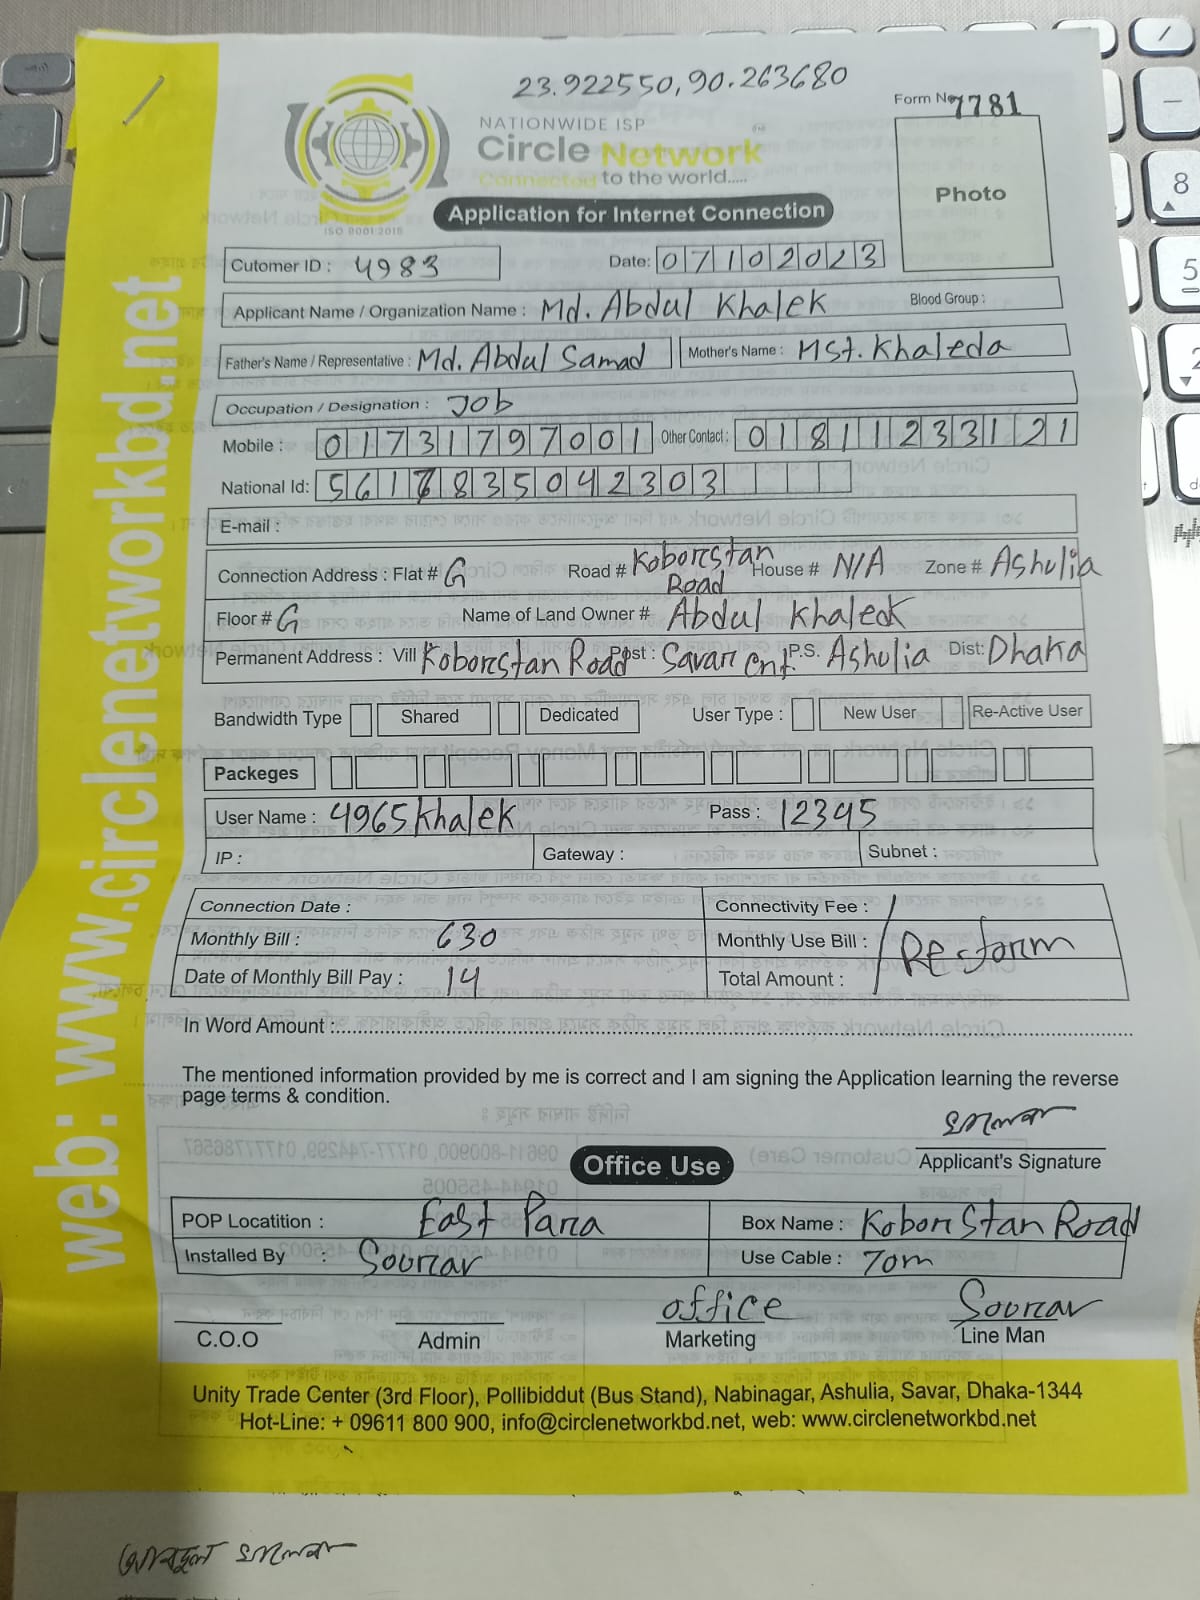 23.922550, 90.263680
Form No 7781
NATIONWIDE ISP
Circle Network
Connected to the world.....
ISO 9001:2015
Application for Internet Connection
Photo
Cutomer ID : 4983
Date: 07102023
Applicant Name / Organization Name : Md. Abdul Khalek Blood Group :
Father's Name / Representative : Md. Abdul Samad Mother's Name : Mst. Khaleda
Occupation / Designation : Job
Mobile : 01731797001 Other Contact : 01811233121
National Id: 5617835042303
E-mail :
Connection Address : Flat # G Road # Koborstan Road House # N/A Zone # Ashulia
Floor # G Name of Land Owner # Abdul Khaleck
Permanent Address : Vill Koborstan Road Post : Savar Cnt. P.S. Ashulia Dist: Dhaka
Bandwidth Type Shared Dedicated User Type : New User Re-Active User
Packeges
User Name : 4965khalek Pass : 12345
IP : Gateway : Subnet :
Connection Date : Connectivity Fee :
Monthly Bill : 630 Monthly Use Bill : Re-form
Date of Monthly Bill Pay : 14 Total Amount :
In Word Amount :
The mentioned information provided by me is correct and I am signing the Application learning the reverse
page terms & condition.
খালেক
Applicant's Signature
Office Use
POP Locatition : East Para Box Name : Koborstan Road
Installed By : Sourav Use Cable : 70m
office Sourav
C.O.O Admin Marketing Line Man
Unity Trade Center (3rd Floor), Pollibiddut (Bus Stand), Nabinagar, Ashulia, Savar, Dhaka-1344
Hot-Line: + 09611 800 900, info@circlenetworkbd.net, web: www.circlenetworkbd.net
web: www.circlenetworkbd.net
আবদুল খালেক